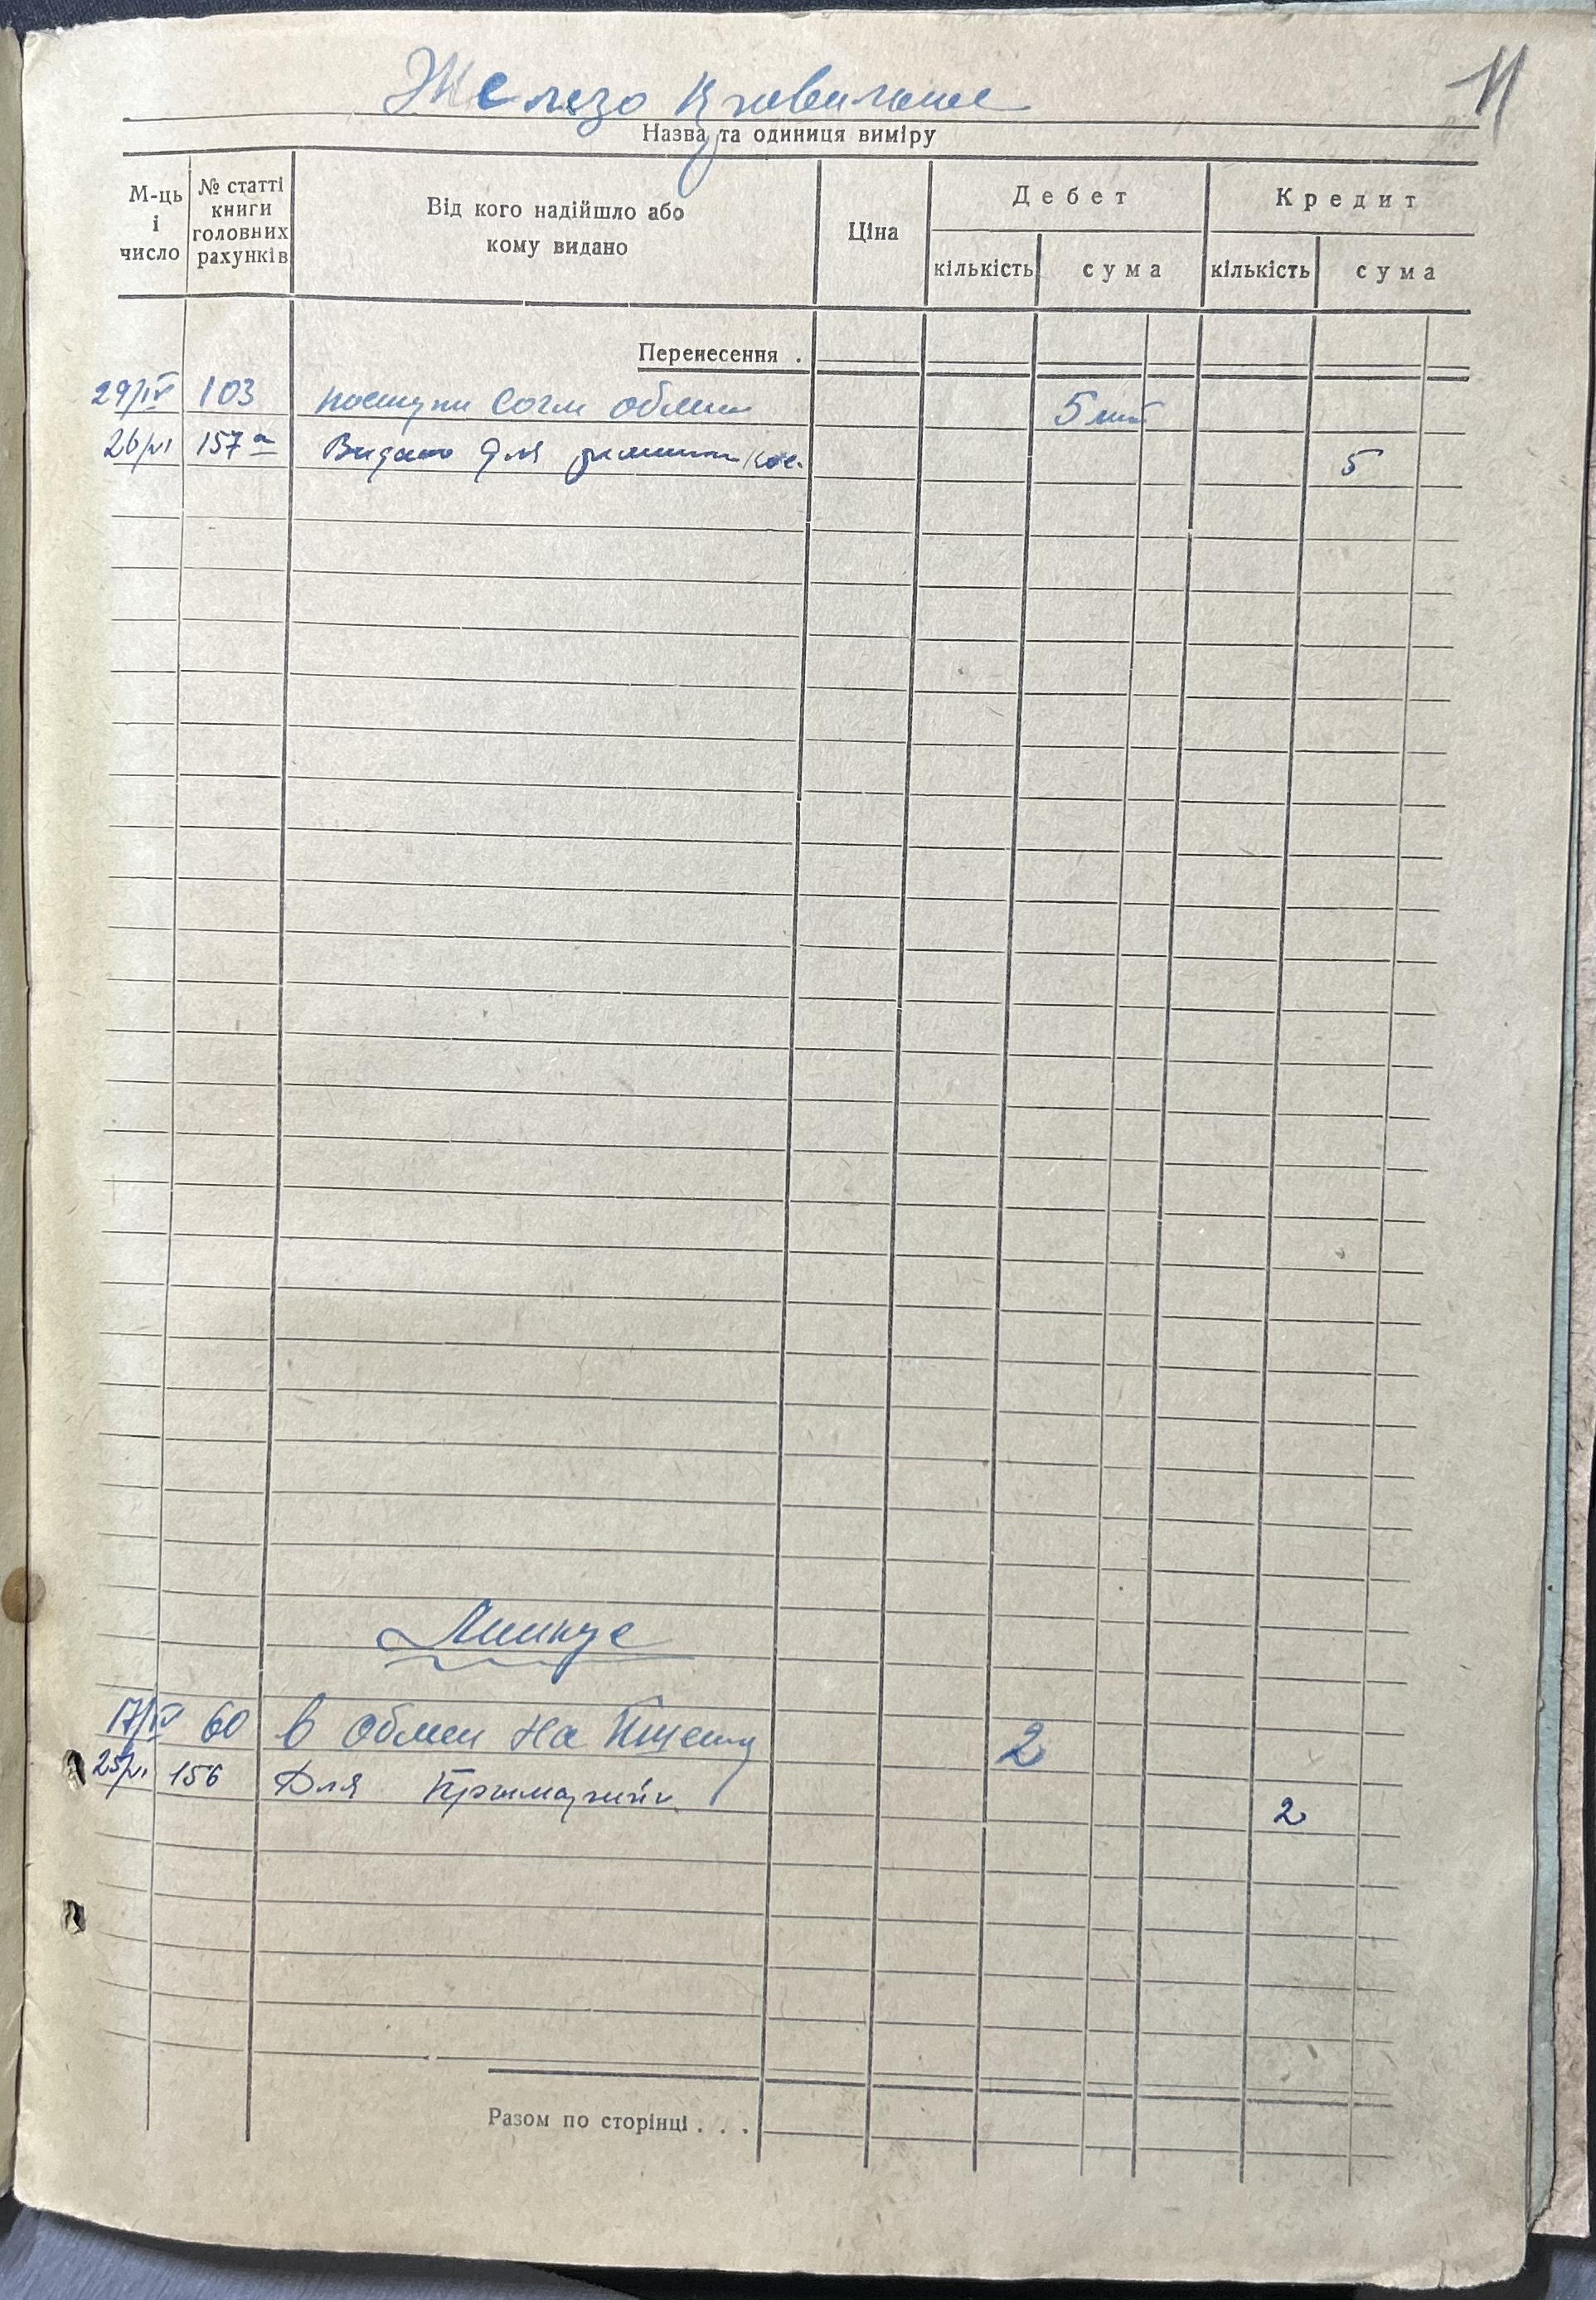 Железо Кровильное
11
Назва та одиниця виміру
М-ць і число
№ статті книги головних рахунків
Від кого надійшло або кому видано
Ціна
Дебет
Кредит
кількість
сума
кількість
сума
Перенесення .
29/IV 103 поступи Согл обмен 5
26/VI 157а Видано для 5
17/IV 60 в обмен на 2
25/VI 156 Для 2
Разом по сторінці . . .